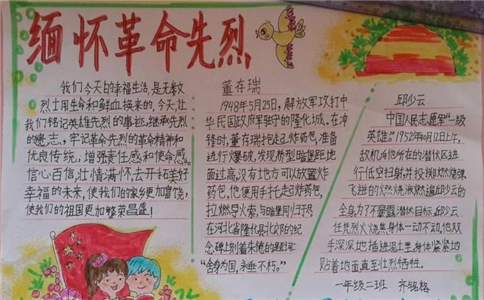 缅怀革命先烈
我们今天的幸福生活,是无数
烈士用生命和鲜血换来的。今天,让
我们铭记英雄先烈的事迹,继承先烈
的遗志。牢记革命先烈的革命精神和
优良传统,增强责任感和使命感。
信心百倍,壮情满怀,去开拓美好
幸福的未来,使我们的家乡更加富饶,
使我们的祖国更加繁荣昌盛!
董存瑞
1948年5月25日,解放军攻打中
华民国政府军驻守的隆化城,在冲
锋时,董存瑞抱起炸药包,准备
进行爆破,发现桥型暗堡距地
面过高,没有地方可以放置炸
药包,他便用手托起炸药包,
拉燃导火索,与暗堡同归于尽
在河北省隆化县北郊的纪
念碑上刻着朱德的题词:
“舍身为国,永垂不朽。”
邱少云
中国人民志愿军一级
英雄。1952年10月12日上午,
敌机向他所在的潜伏区进
行低空扫射并投掷燃烧弹
飞迸的燃烧液燃遍邱少云的
全身为了不暴露潜伏目标,邱少云
任凭烈火烧焦身体一动不动,他双
手深深地插进泥土里,身体紧紧地
贴着地面直至壮烈牺牲。
一年级二班